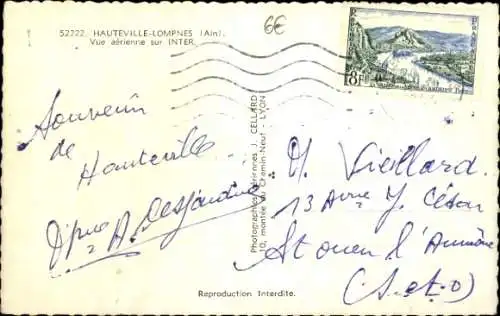 52222. HAUTEVILLE-LOMPNES (Ain).
Vue aérienne sur INTER.
6€
8F
Souvenir
de
Hauteville
A. Desjardins
Photographies aériennes J. CELLARD
10, montée du Chemin-Neuf - LYON
Vieillard.
13 Avnue J. César
St Ouen l'Aumône
(S-et-O)
Reproduction Interdite.